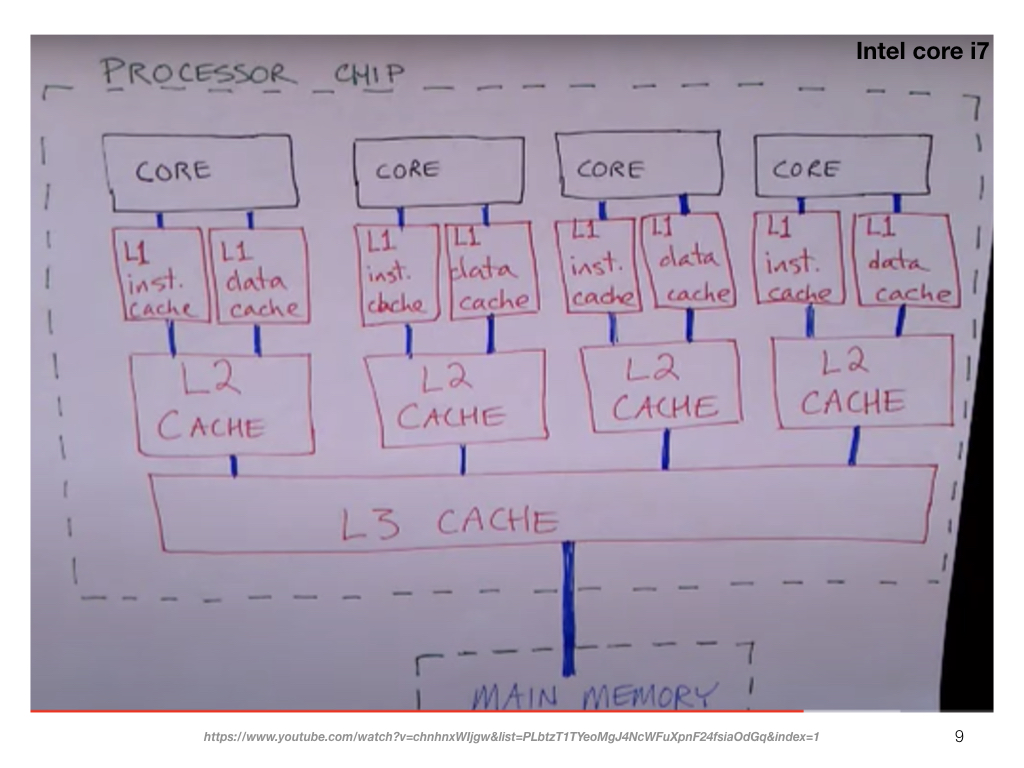 Intel core i7
PROCESSOR CHIP
CORE
CORE
CORE
CORE
L1
inst.
cache
L1
data
cache
L1
inst.
cache
L1
data
cache
L1
inst.
cache
L1
data
cache
L1
inst.
cache
L1
data
cache
L2
CACHE
L2
CACHE
L2
CACHE
L2
CACHE
L3 CACHE
MAIN MEMORY
https://www.youtube.com/watch?v=chnhnxWIjgw&list=PLbtzT1TYeoMgJ4NcWFuXpnF24fsiaOdGq&index=1
9